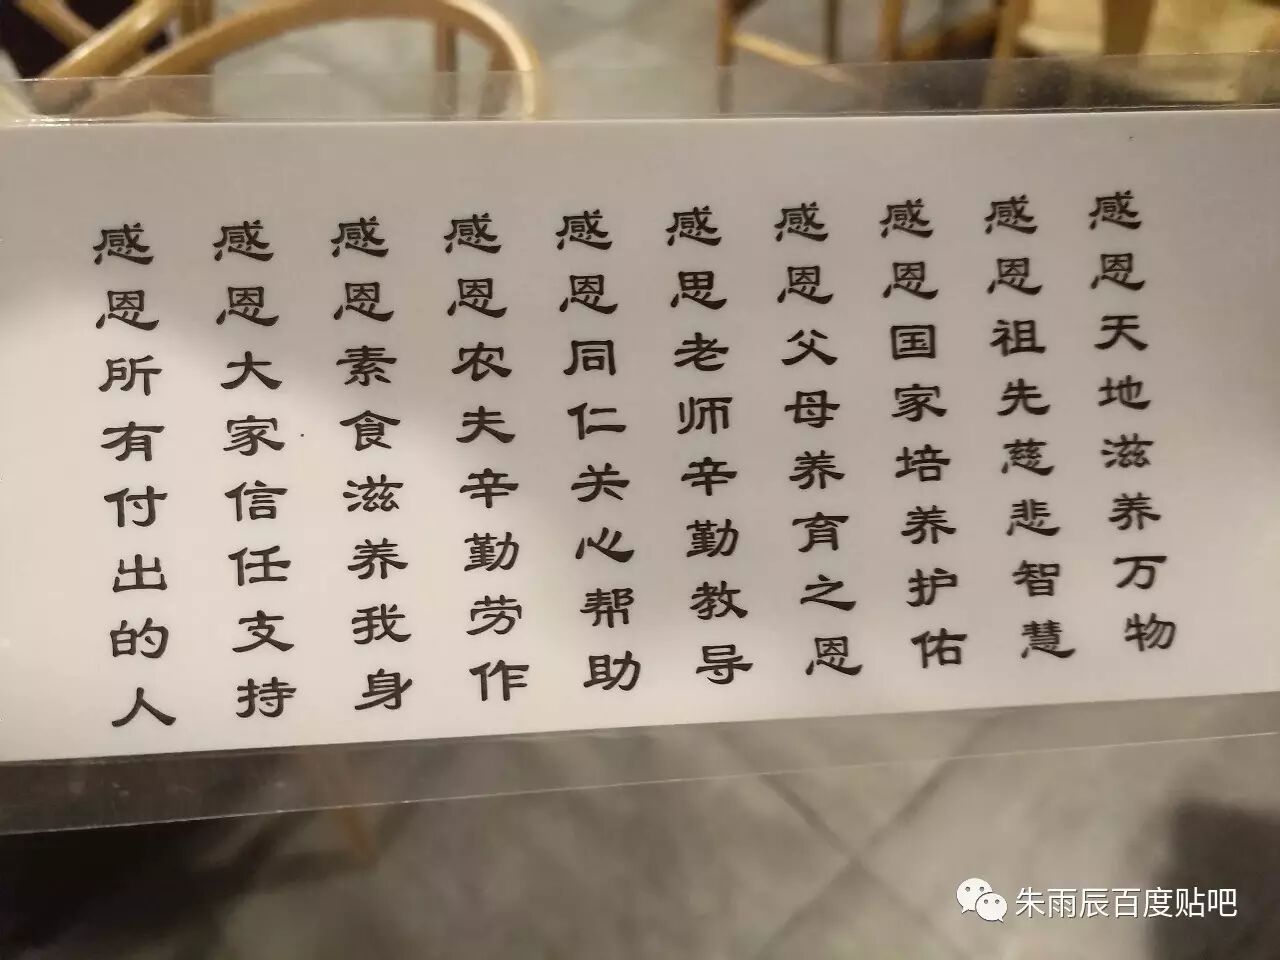 感恩天地滋养万物
感恩祖先慈悲智慧
感恩国家培养护佑
感恩父母养育之恩
感思老师辛勤教导
感恩同仁关心帮助
感恩农夫辛勤劳作
感恩素食滋养我身
感恩大家信任支持
感恩所有付出的人
朱雨辰百度贴吧